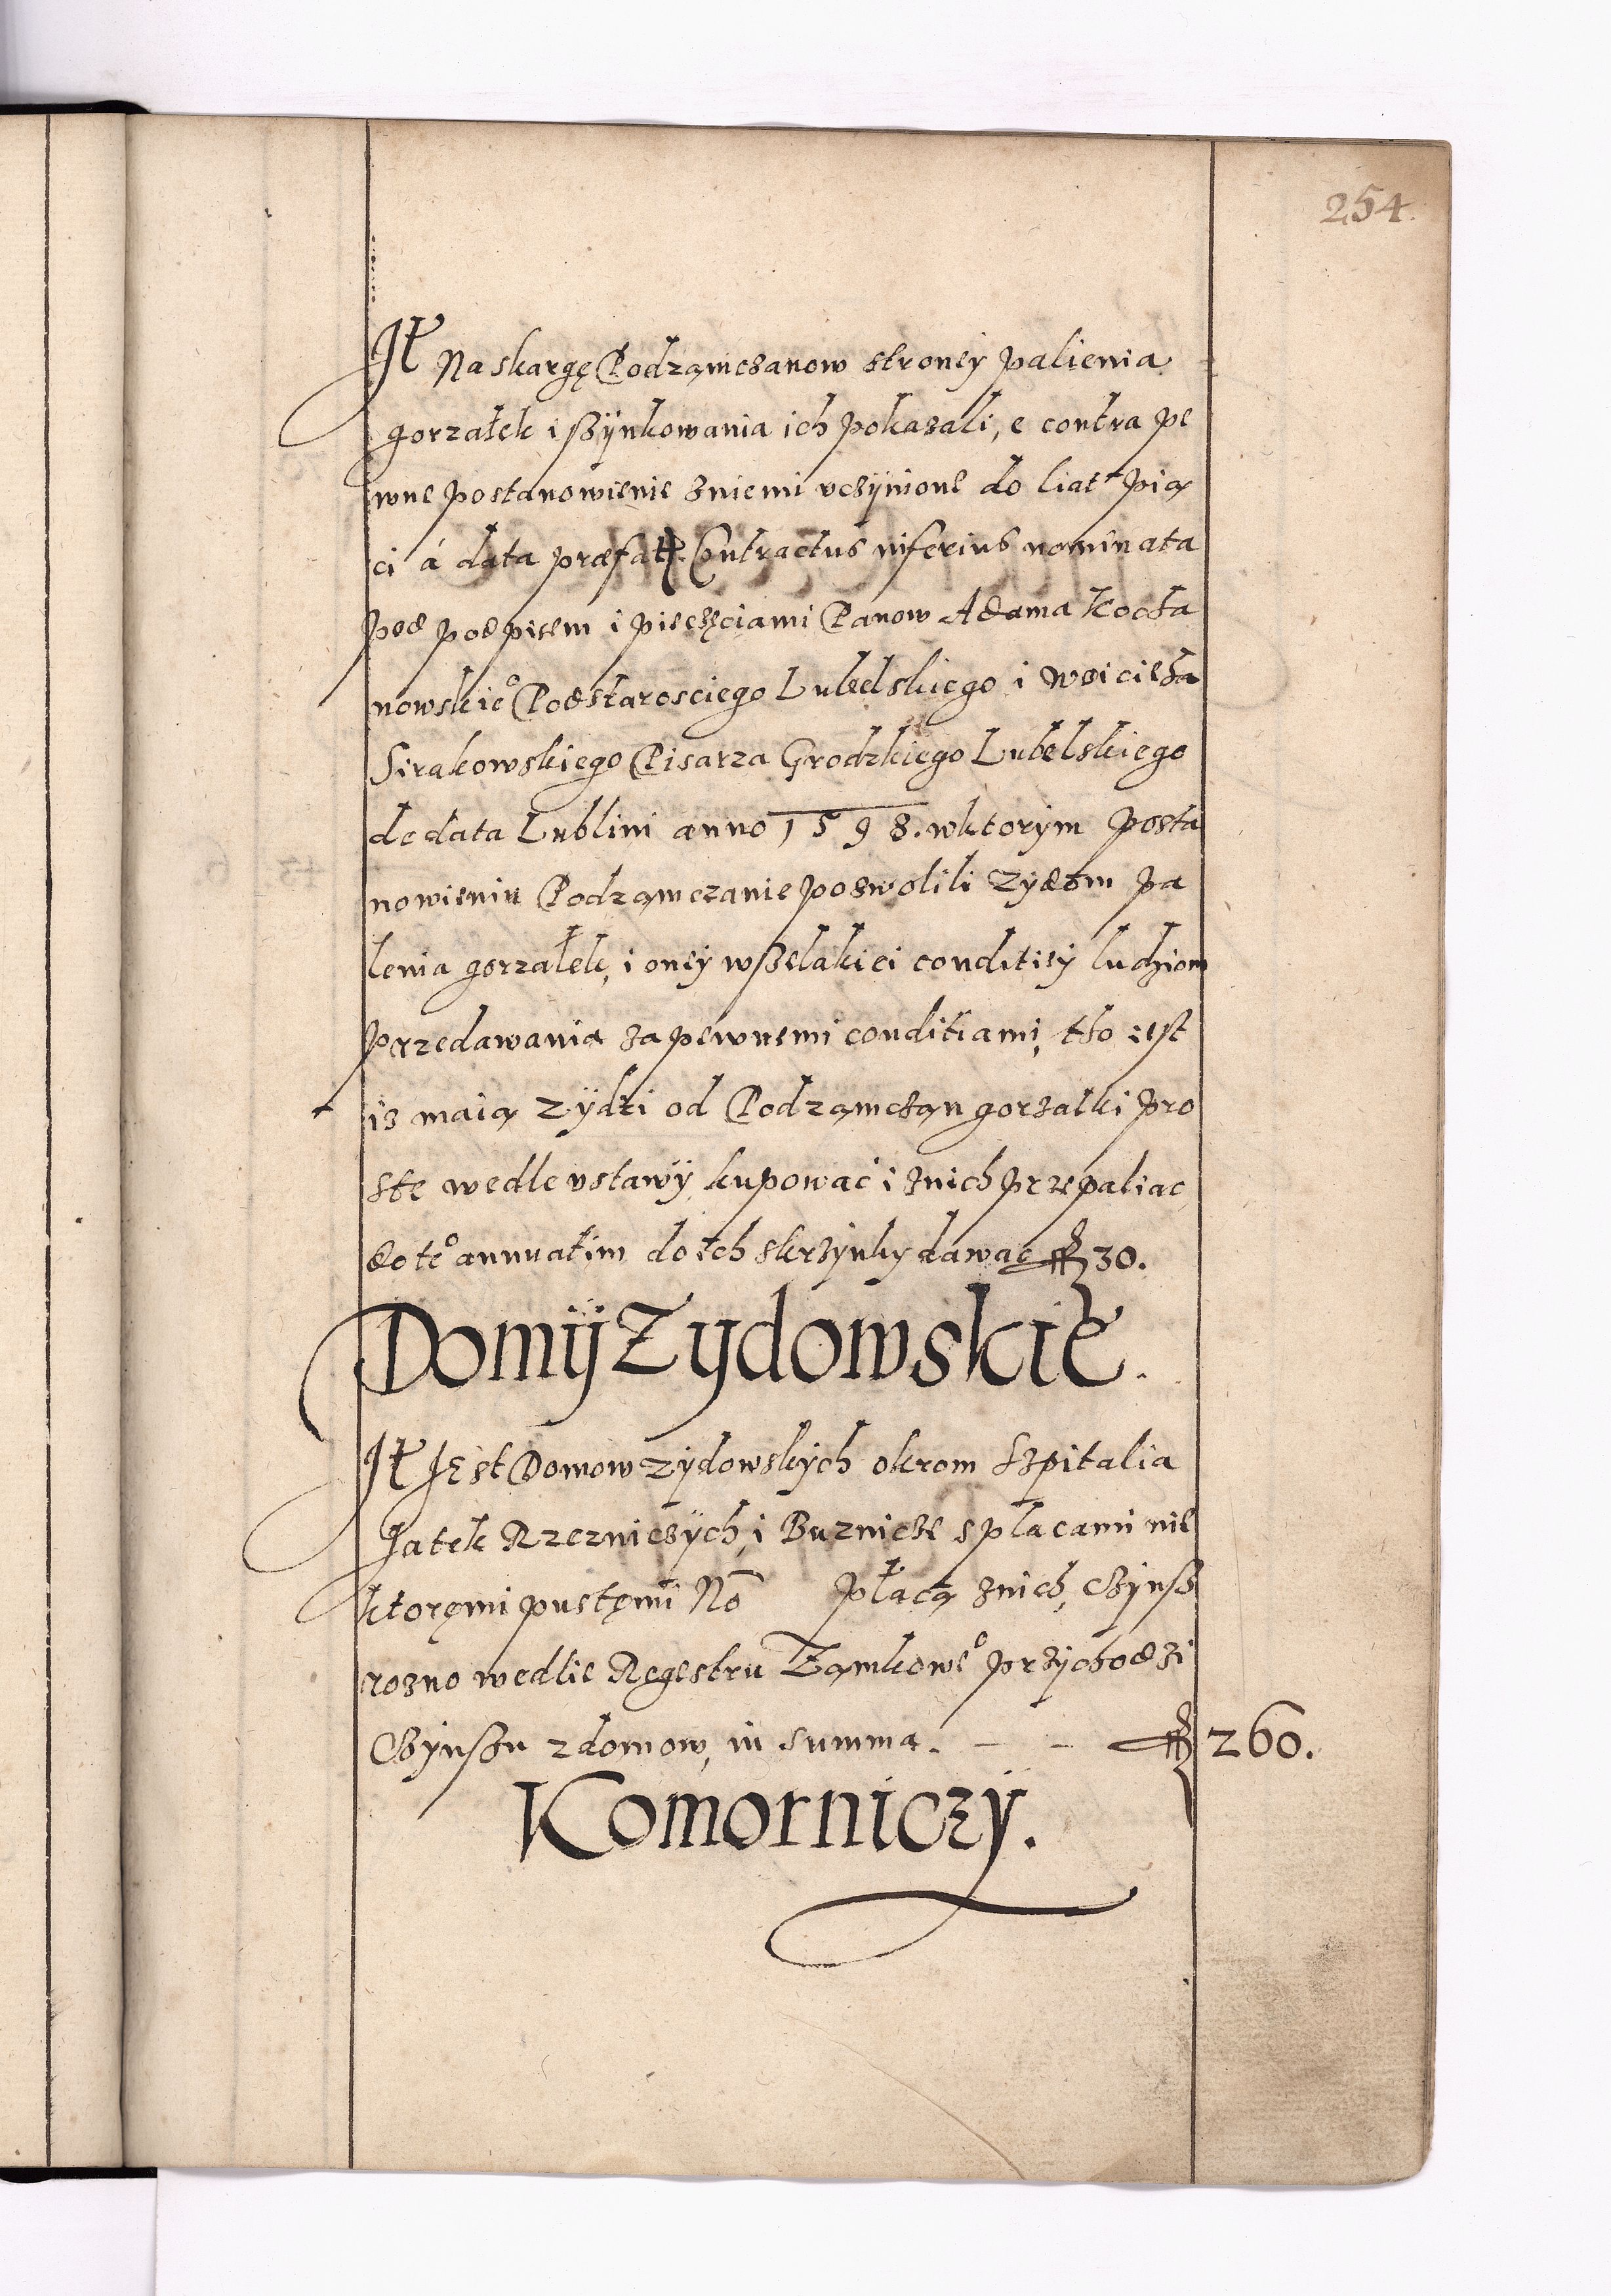 254.
Jt Na skargę Podzamczanow stroney palienia
gorzałek i ßynkowania ich pokazali, e contra pe
wne postanowienie zniemi vczÿnione do liat pią
ci á data præfati Contractus inferius nominata
pod podpisem i pieczęciami Panow Adama Kocha
nowskieº Podstarosciego Lubelskiego i Woiciecha
Sirakowskiego Pisarza Grodzkiego Lubelskiego
de data Lublini anno 1598. wktorym posta
nowieniu Podzamczanie pozwolili Zydom pa
lenia gorzałek, i oneÿ wßelakiei conditieÿ ludziom
przedawania za pewnemi conditiami, tho iest
iz maią Zÿdzi od Podzamczan gorzalki pro
ste wedle vstawÿ kupowac i znich przepaliac,
do teº annuatim do ich skrzynky dawac ff 30.
Domÿ Zydowskie.
Jt Jest Domow Zydowskych okrom Szpitalia
Jatek Rzezniczÿch, i Buznicze s placami nie
ktoręmi pustęmi No płacą znich, Czÿnß
rozno wedlie Regestru Zamkoweº przychodzi
Czÿnßu z domow, in summa. — — ff 260.
Komorniczÿ.